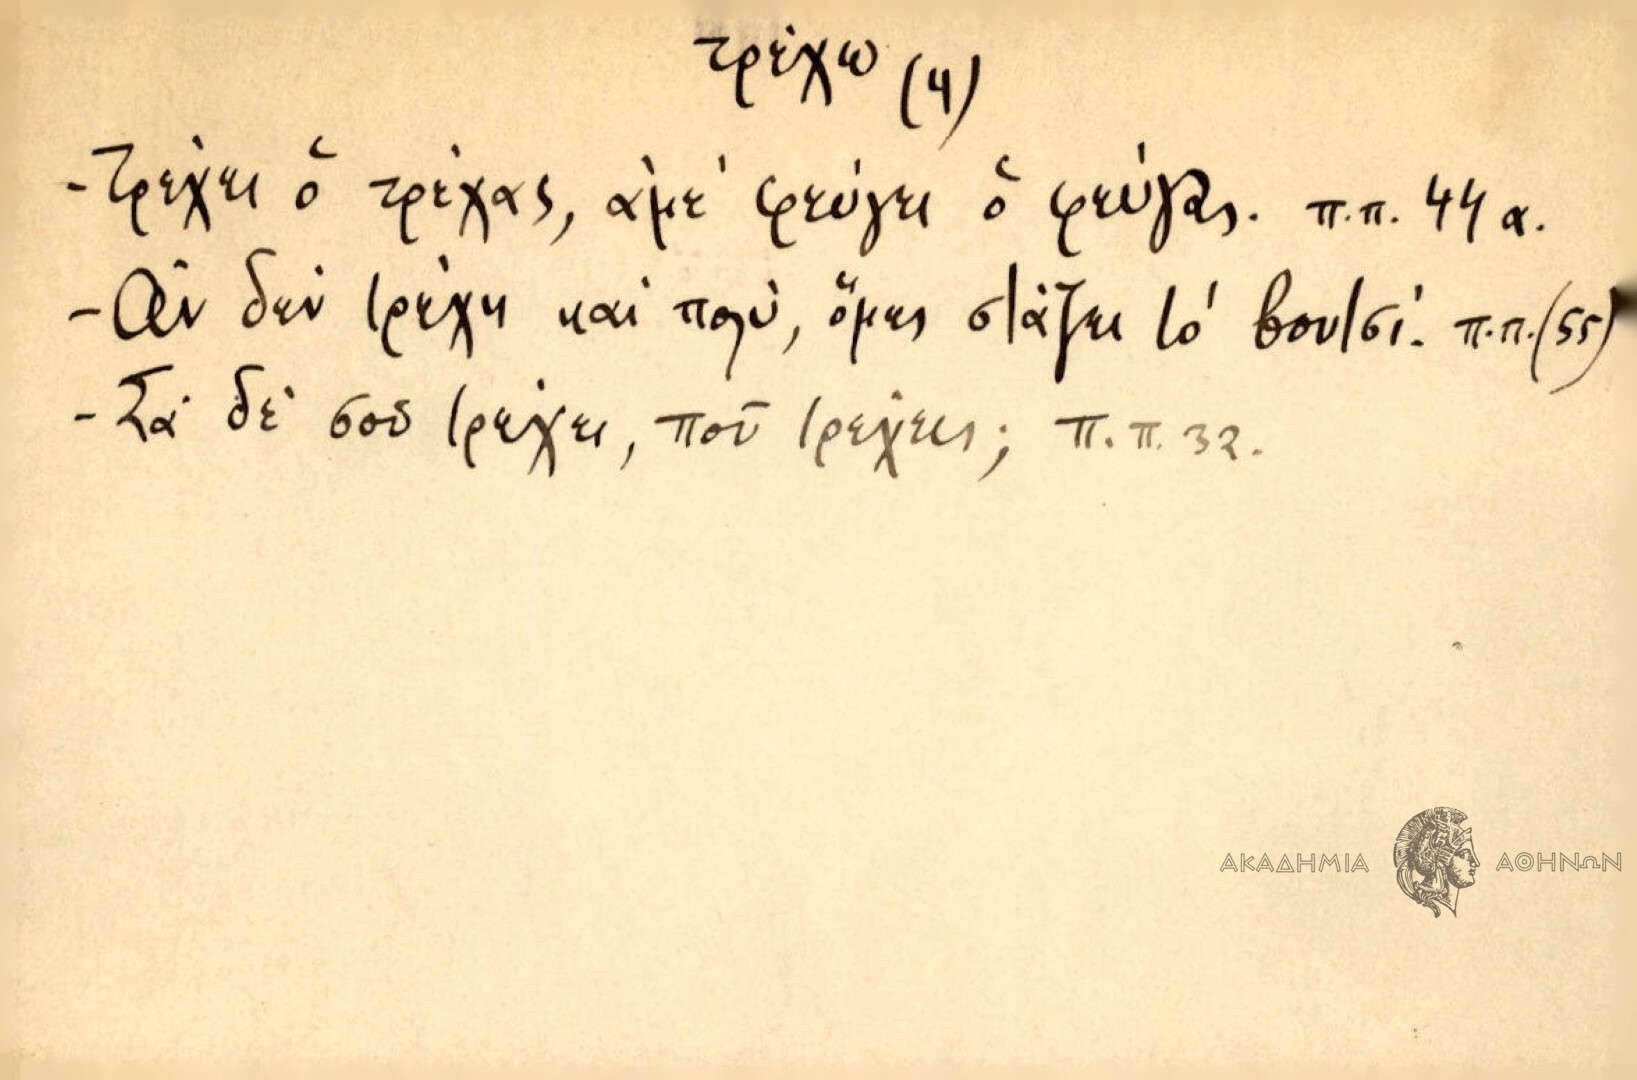 τρέχω (4)
-Τρέχει ὁ τρέχας, ἀμὲ φεύγει ὁ φεύγας. π.π. 44 α.
-Ἂν δὲν τρέχῃ καὶ πολύ, ὅμως στάζει τὸ βουτσί. π.π. (55)
-Σὰ δὲ σοῦ τρέχει, ποῦ τρέχεις; π.π. 32.
ΑΚΑΔΗΜΙΑ ΑΘΗΝΩΝ